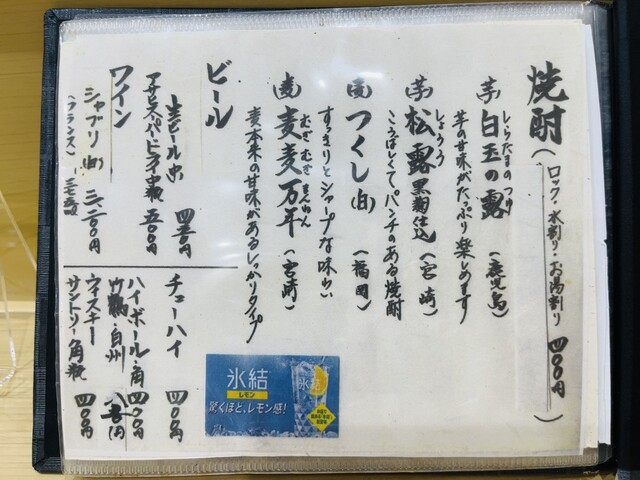 焼酎(ロック・水割り・お湯割り 四〇〇円)
芋 白玉の露(鹿児島)
しらたまのつゆ
芋の甘味がたっぷり楽しめます
芋 松露 黒麹仕込(宮崎)
しょうろ
こうばしくてパンチのある焼酎
麦 つくし(白)(福岡)
すっきりとシャープな味わい
麦 麦麦万年(宮崎)
むぎむぎまんねん
麦本来の甘味があるしっかりタイプ
ビール
生ビール中
アサヒスーパードライ中瓶 五〇〇円
ワイン
シャブリ(白)
(フランス)
チューハイ 四〇〇円
ハイボール・角 四〇〇円
〃
白州
ウィスキー
サントリー角瓶 四〇〇円
氷結
レモン
驚くほど、レモン感!
氷結